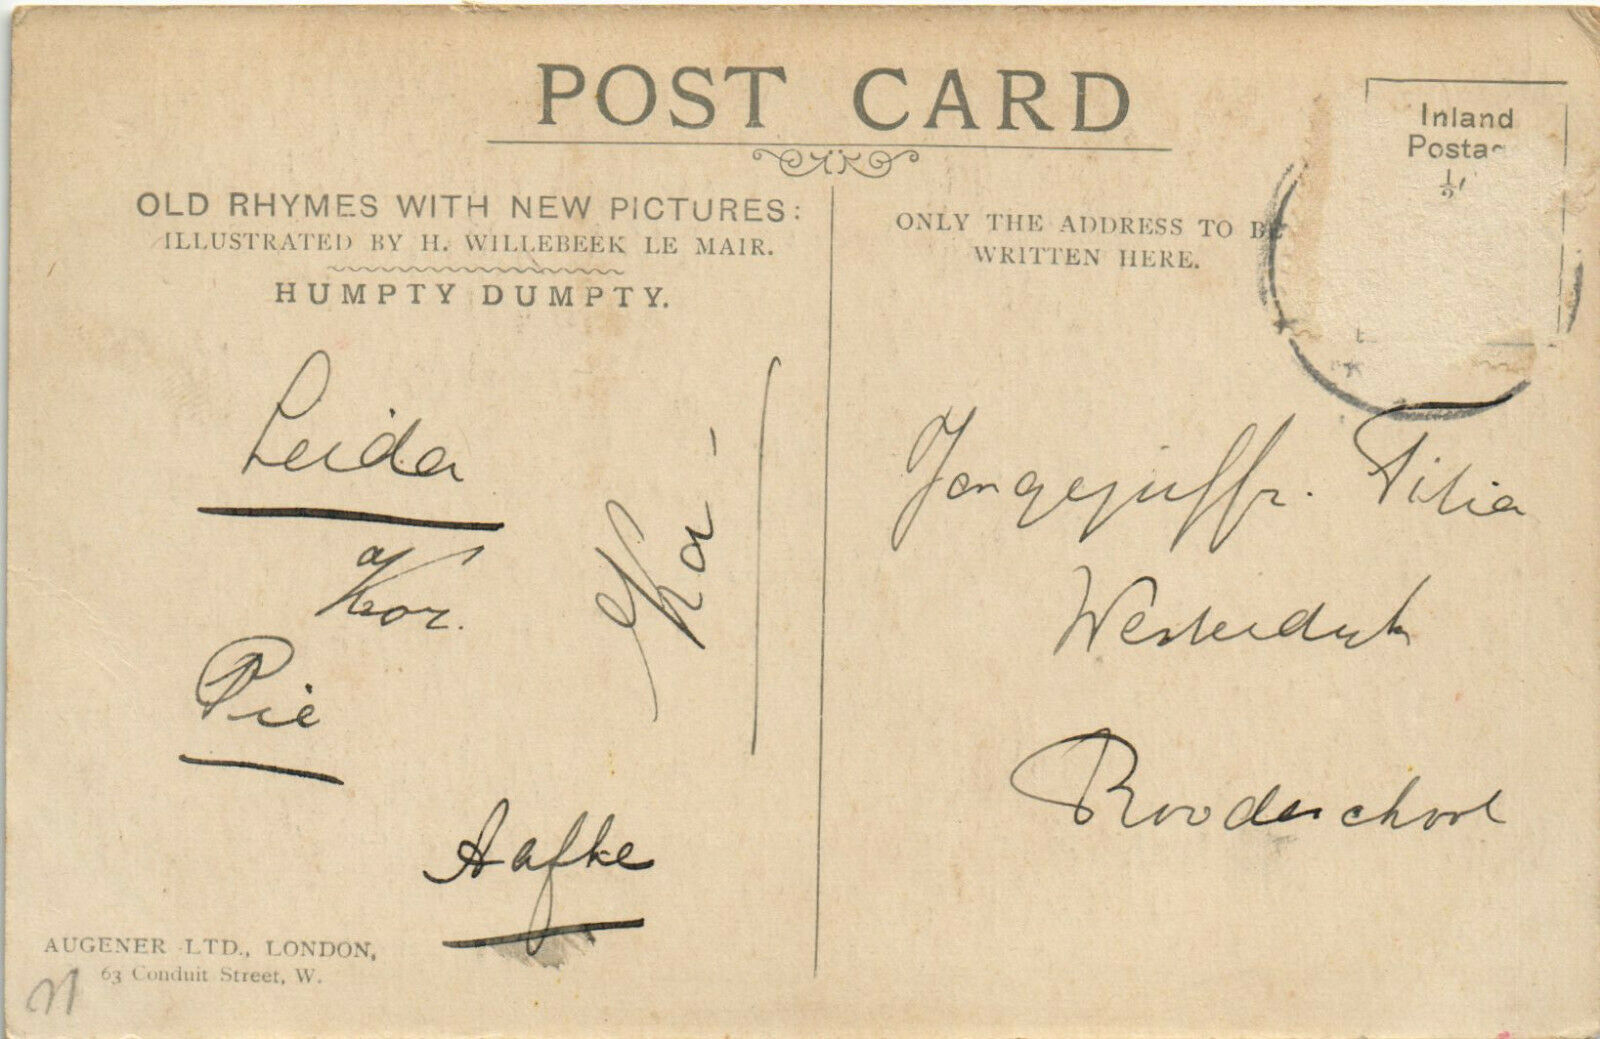 POST CARD
OLD RHYMES WITH NEW PICTURES:
ILLUSTRATED BY H. WILLEBEEK LE MAIR.
HUMPTY DUMPTY.
Leida
Kor.
Pie
Ka-
Aafke
AUGENER LTD., LONDON,
63 Conduit Street, W.
Inland
Posta
½
ONLY THE ADDRESS TO BE
WRITTEN HERE.
Jongejuffr. Filia
Westerdijk
Roodeschool